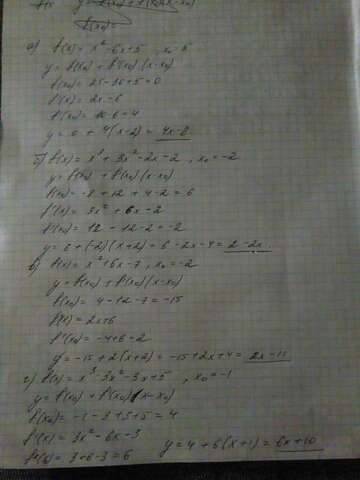 y = f(x₀) + f'(x₀)(x-x₀)
f(x₀)=
а) f(x) = x² - 6x + 5 , x₀ 5
y = f(x₀) + f'(x₀)(x-x₀)
f(x₀) = 25 - 30 + 5 = 0
f'(x) = 2x - 6
f'(x₀) = 10 - 6 = 4
y = 0 + 4(x-2) = 4x-8
б) f(x) = x³ + 3x² - 2x - 2 , x₀ = -2
y = f(x₀) + f'(x₀)(x-x₀)
f(x₀) = -8 + 12 + 4 - 2 = 6
f'(x) = 3x² + 6x - 2
f'(x₀) = 12 - 12 - 2 = -2
y = 6 + (-2)(x+2) = 6 - 2x - 4 = 2-2x.
в) f(x) = x² + 6x - 7 , x₀ = -2
y = f(x₀) + f'(x₀)(x-x₀)
f(x₀) = 4 - 12 - 7 = -15
f'(x) = 2x+6
f'(x₀) = -4+6 = 2
y = -15 + 2(x+2) = -15 + 2x + 4 = 2x-11
г) f(x) = x³ - 3x² - 3x + 5 , x₀ = -1
y = f(x₀) + f'(x₀)(x-x₀)
f(x₀) = -1 - 3 + 3 + 5 = 4
f'(x) = 3x² - 6x - 3
f'(x₀) = 3 + 6 - 3 = 6
y = 4 + 6(x+1) = 6x+10